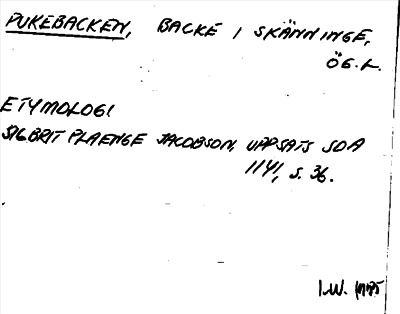 PUKEBACKEN, BACKE I SKÄNNINGE,
ÖG.L.
ETYMOLOGI
SIGBRIT PLAENGE JACOBSON, UPPSATS SOA
1141, S. 36.
I.W.